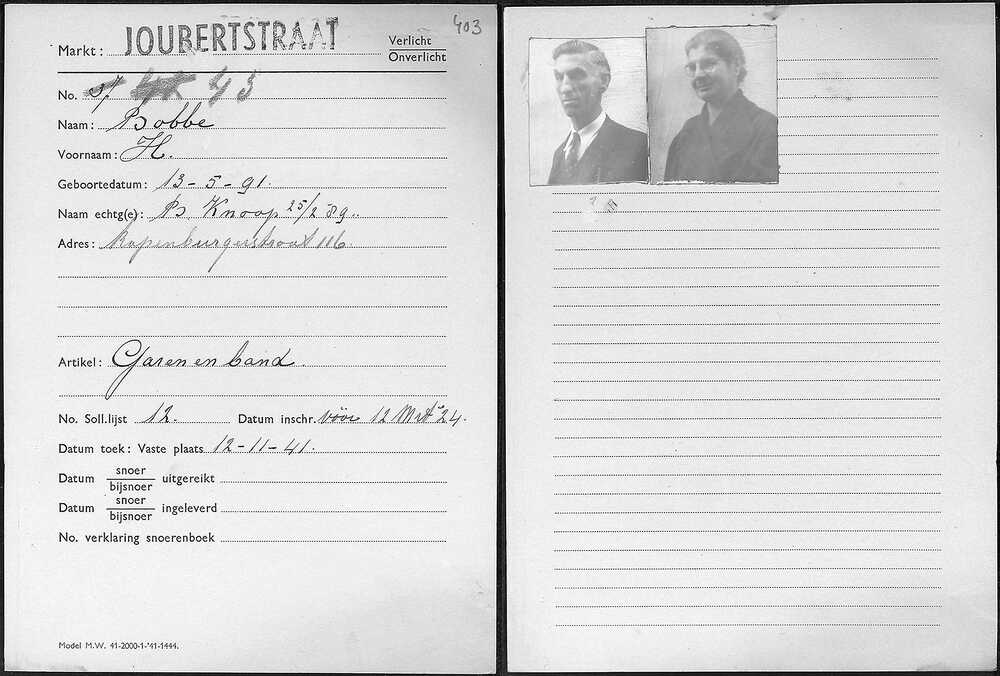 403
Markt: JOUBERTSTRAAT Verlicht
Onverlicht
No. 45
Naam: Bobbe
Voornaam: H.
Geboortedatum: 13-5-91.
Naam echtg(e): Knoop 25/2 89.
Adres: Rapenburgerstraat 116
Artikel: Garen en band.
No. Soll.lijst 12. Datum inschr. vóór 12 Mrt '24.
Datum toek: Vaste plaats 12-11-41.
Datum snoer uitgereikt
bijsnoer
Datum snoer ingeleverd
bijsnoer
No. verklaring snoerenboek
Model M.W. 41-2000-1-'41-1444.